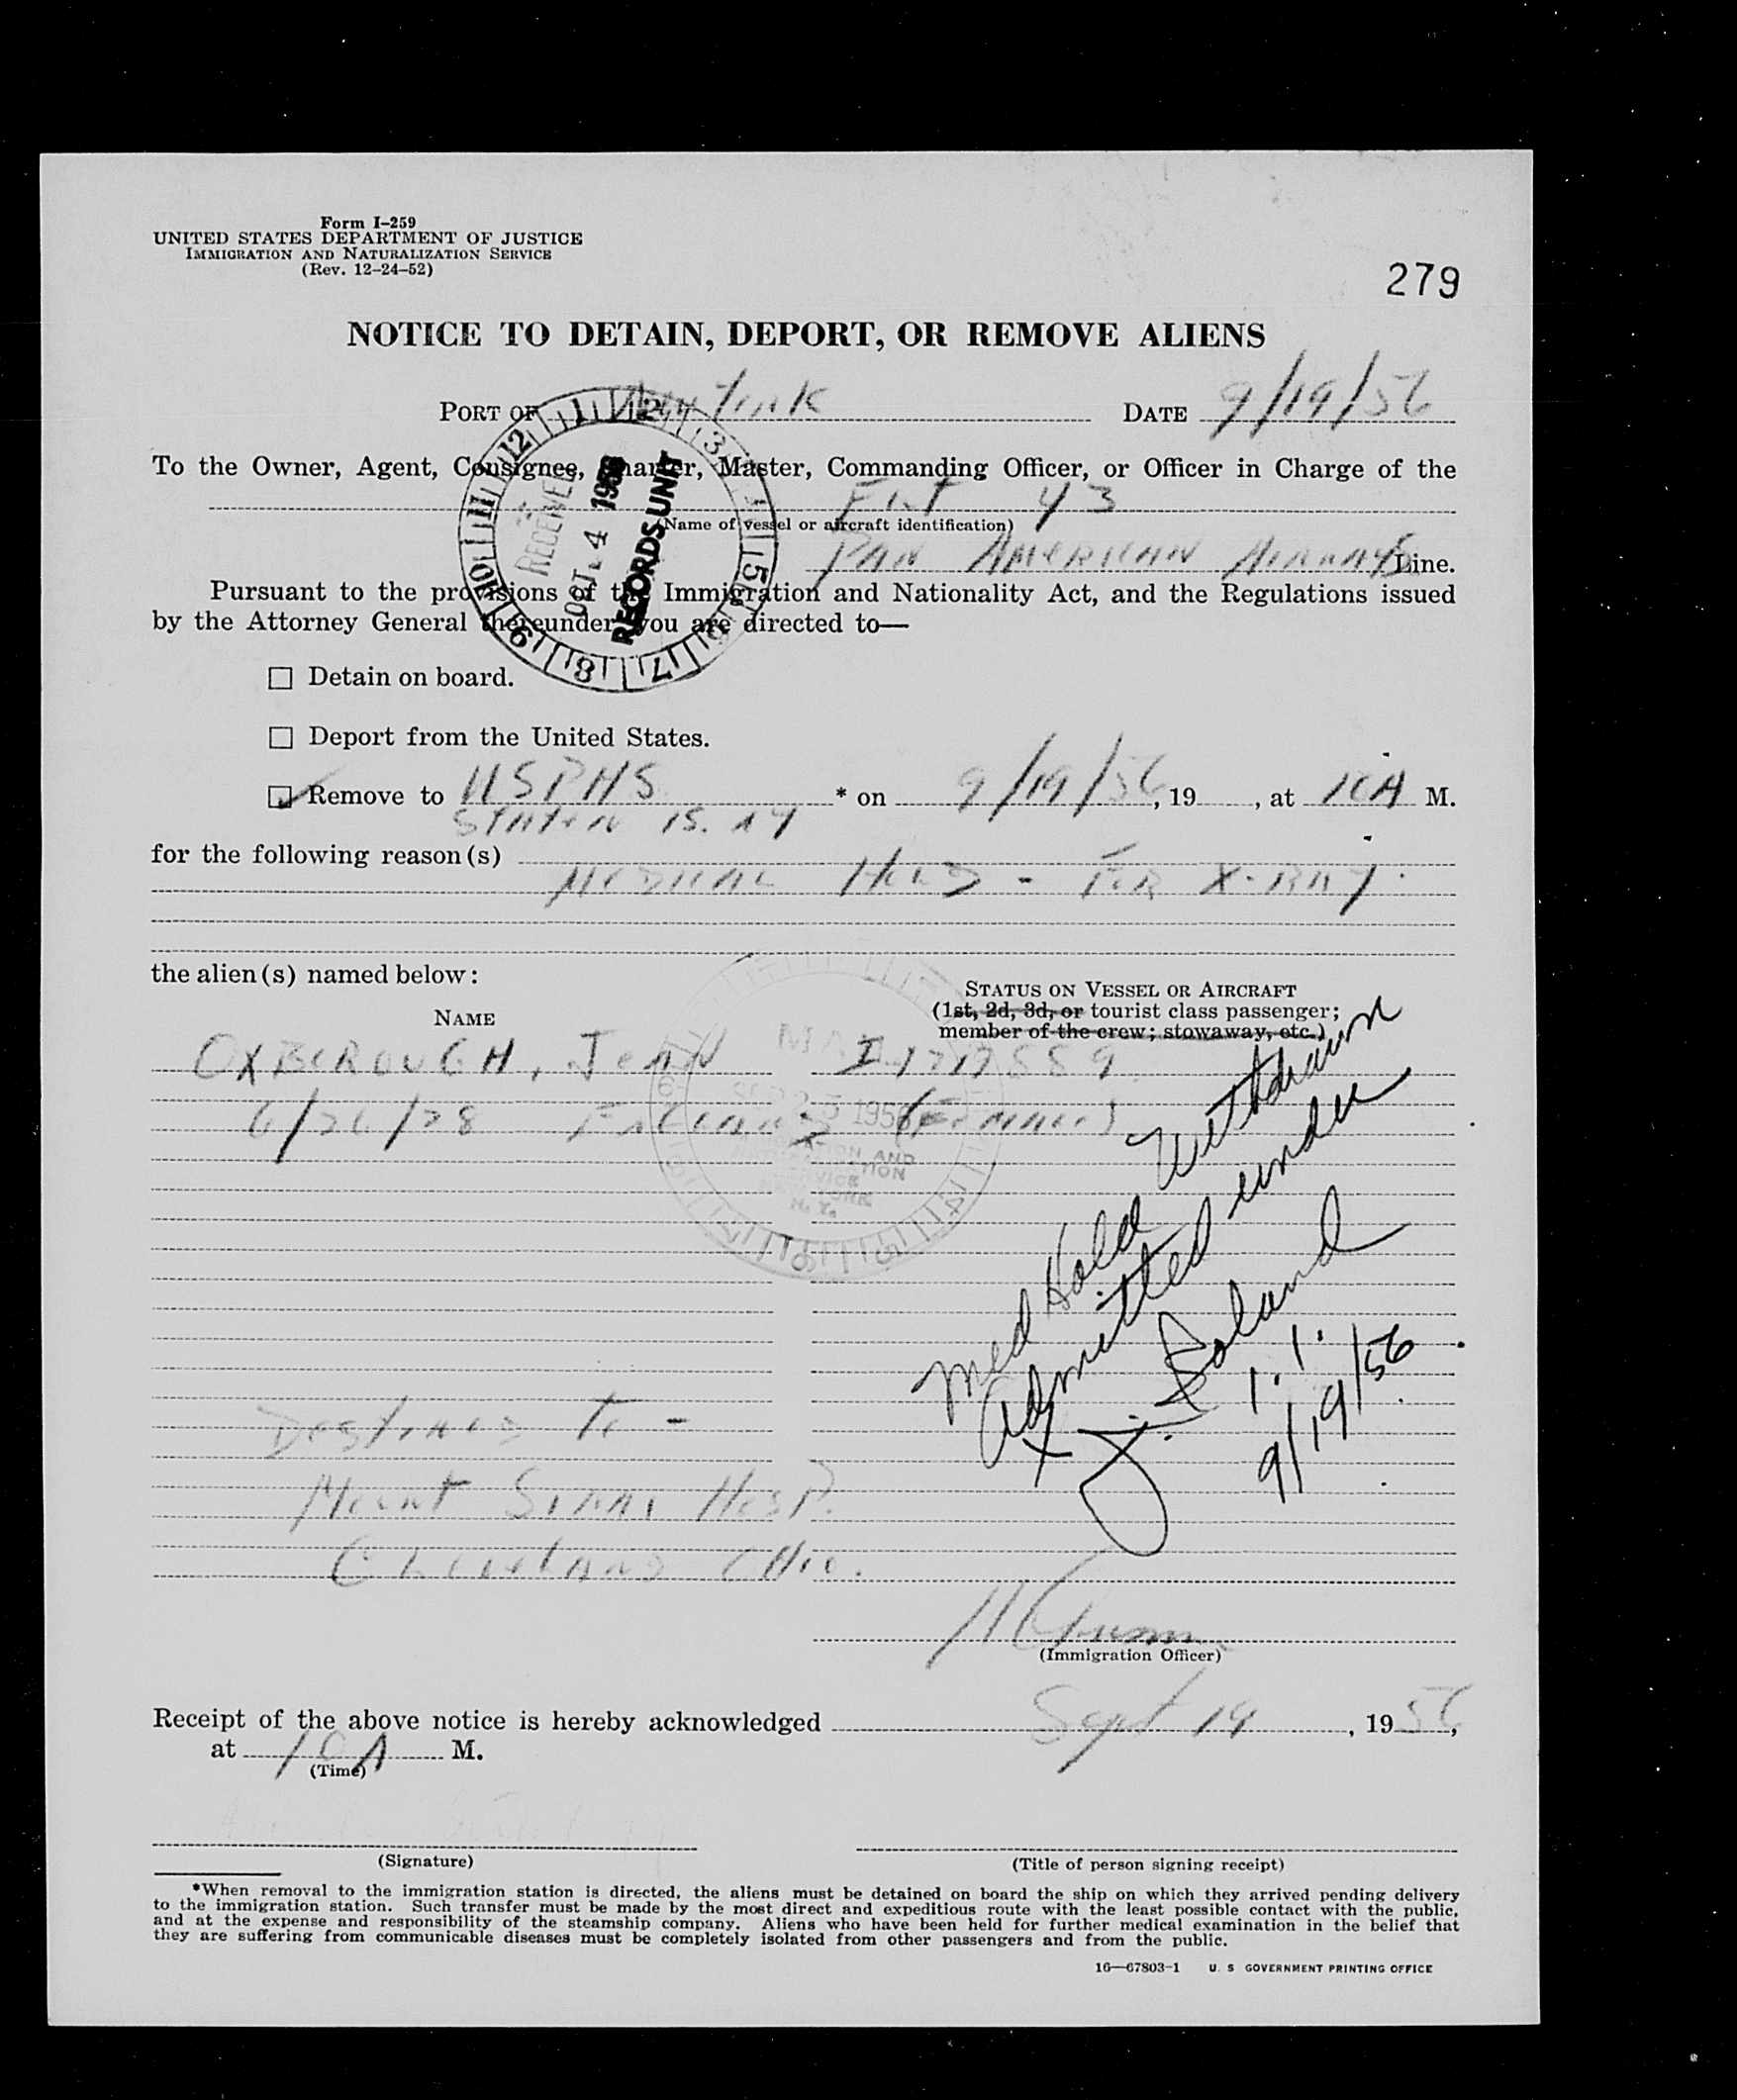 Form I-259
UNITED STATES DEPARTMENT OF JUSTICE
IMMIGRATION AND NATURALIZATION SERVICE
(Rev. 12-24-52)
279
NOTICE TO DETAIN, DEPORT, OR REMOVE ALIENS
PORT OF New York DATE 9/19/56
To the Owner, Agent, Consignee, Charter, Master, Commanding Officer, or Officer in Charge of the
Flt 43
(Name of vessel or aircraft identification)
PAN AMERICAN Airways Line.
Pursuant to the provisions of the Immigration and Nationality Act, and the Regulations issued
by the Attorney General thereunder you are directed to—
RECEIVED
OCT. 4 1956
RECORDS UNIT
Detain on board.
Deport from the United States.
Remove to USPHS * on 9/19/56, 19 , at 10A M.
STATEN IS. NY
for the following reason(s)
MEDICAL HOLD - FOR X-RAY.
the alien(s) named below:
STATUS ON VESSEL OR AIRCRAFT
(1st, 2d, 3d, or tourist class passenger;
member of the crew; stowaway, etc.)
NAME
OXBOROUGH, JEAN I 1717559
6/26/28 England (Female)
Med Hold Withdrawn
Admitted under
J. Roland
I. I.
9/19/56
Destined To -
Mount Sinai Hosp.
Cleveland Ohio.
(Immigration Officer)
Receipt of the above notice is hereby acknowledged Sept 19, 1956,
at 10A M.
(Time)
(Signature)
(Title of person signing receipt)
*When removal to the immigration station is directed, the aliens must be detained on board the ship on which they arrived pending delivery
to the immigration station. Such transfer must be made by the most direct and expeditious route with the least possible contact with the public,
and at the expense and responsibility of the steamship company. Aliens who have been held for further medical examination in the belief that
they are suffering from communicable diseases must be completely isolated from other passengers and from the public.
16—67803-1 U. S GOVERNMENT PRINTING OFFICE